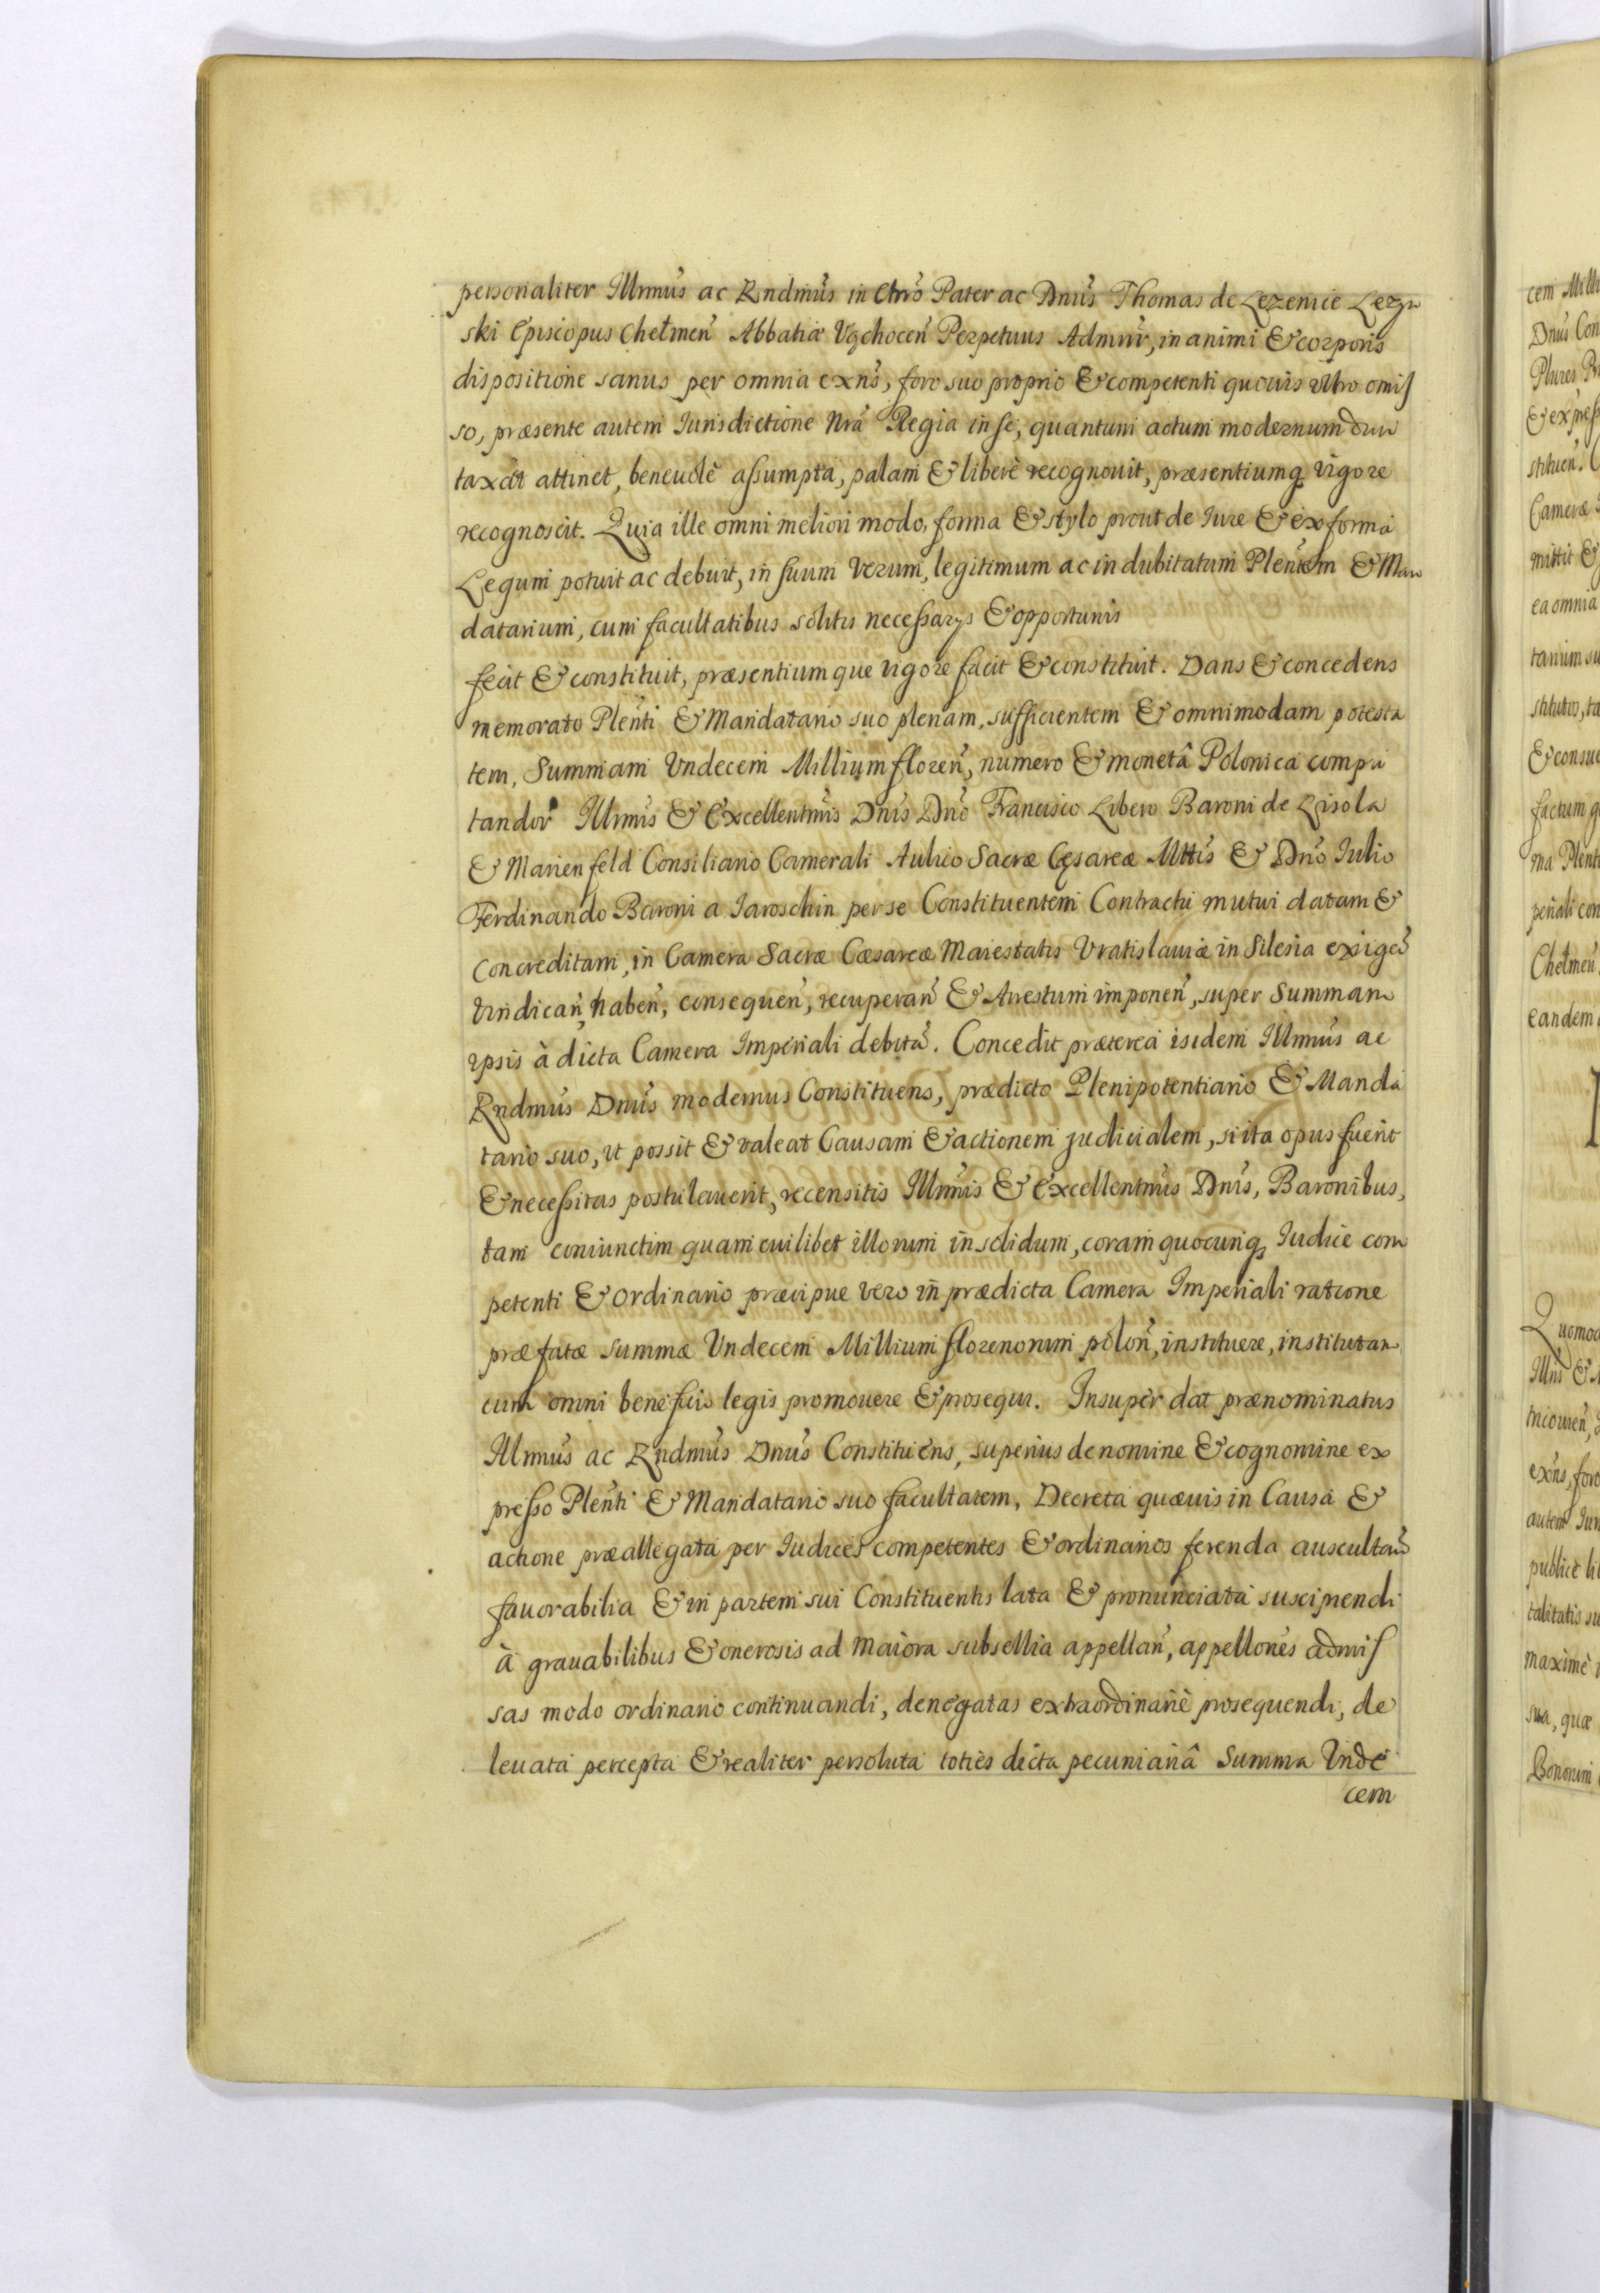 personaliter Illmus ac Rndmus in Chro Pater ac Dnus Thomas de Lezenice Lezen
ski Episcopus Chełmen Abbatiæ Vąchocen Perpetuus Admnr, in animi & corporis
dispositione sanus per omnia exns, foro suo proprio & competenti quouis vltro omis
so, præsente autem Iurisdictione Nra Regia in se, quantum actum modernum dun
taxat attinet, beneuolè assumpta, palam & liberè recognouit, præsentiumq vigore
recognoscit. Quia ille omni meliori modo, forma & stylo prout de Iure & ex forma
Legum potuit ac debuit, in suum Verum, legitimum ac indubitatum Plentem & Man
datarium, cum facultatibus solitis necessarys & opportunis
fecit & constituit, præsentium que vigore facit & constituit. Dans & concedens
memorato Plenti & Mandatario suo plenam, sufficientem & omnimodam potesta
tem, Summam Vndecem Millium floren, numero & monetâ Polonica compu
tandor Illmis & Excellentmis Dnis Dno Francisco Libero Baroni de Lisola
& Marienfeld Consiliario Camerali Aulico Sacræ Cęsareæ Mttis & Dno Iulio
Ferdinando Baroni a Iaroschin per se Constituentem Contractu mutui datam &
concreditam, in Camera Sacræ Cæsareæ Maiestatis Vratislauiæ in Silesia exigen
Vindican, haben, consequen, recuperan & Arrestum imponen, super Summam
ipsis à dicta Camera Imperiali debitā. Concedit præterea isidem Illmus ac
Rndmus Dnus modernus Constituens, prædicto Plenipotentiario & Manda
tario suo, vt possit & valeat Causam & actionem judicialem, si ita opus fuerit
& necessitas postulauerit, recensitis Illmis & Excellentmis Dnis, Baronibus,
tam coniunctim quam cuilibet illorum in solidum, coram quocunq Iudice com
petenti & Ordinario præcipue vero in prædicta Camera Imperiali ratione
præfatæ summæ Vndecem Millium florenorum polon, instituere, institutam
cum omni beneficio legis promouere & prosequi. Insuper dat prænominatus
Illmus ac Rndmus Dnus Constituens, superius de nomine & cognomine ex
presso Plenti & Mandatario suo facultatem, Decreta quæuis in Causa &
actione præallegata per Iudices competentes & ordinarios ferenda auscultan
fauorabilia & in partem sui Constituentis lata & pronunciata suscipiendi
à grauabilibus & onerosis ad Maiora subsellia appellan, appellones admis
sas modo ordinario continuandi, denegatas extraordinariè prosequendi, de
leuata percepta & realiter persoluta toties dicta pecuniariâ Summa Vnde
cem